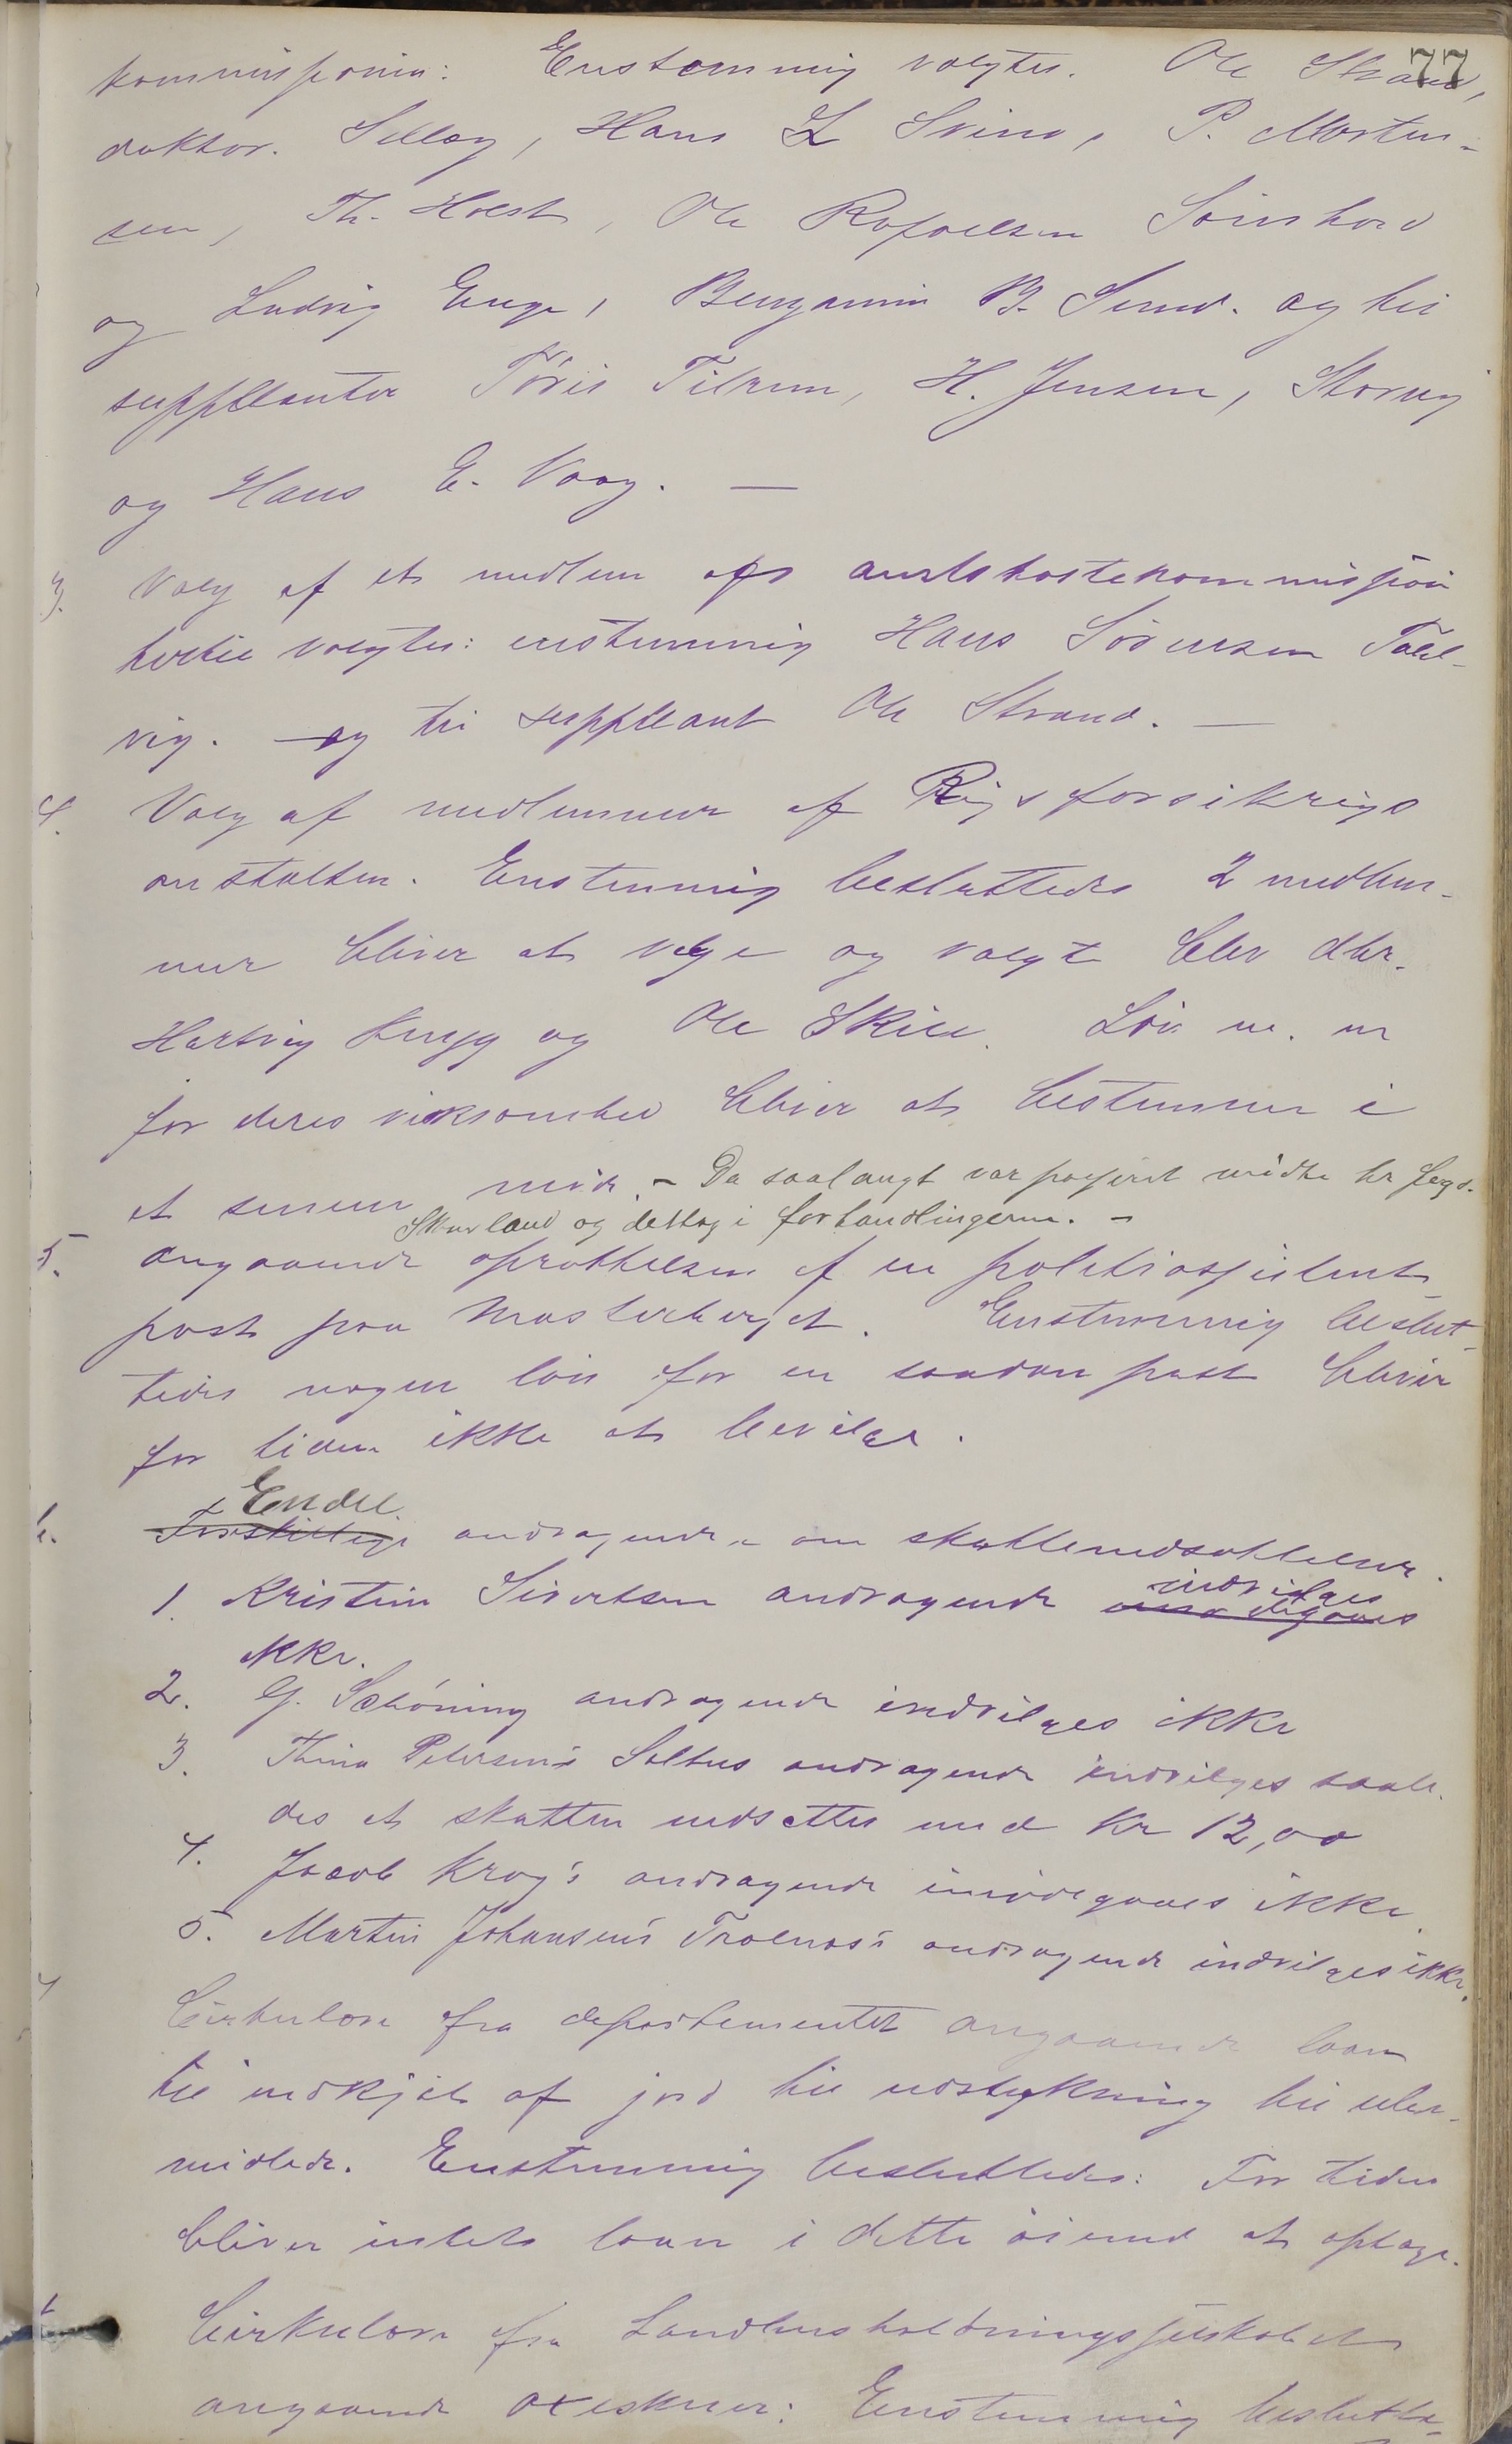 77
kommissionen: Enstemmig valgtes. Ole Strand,
doktor. Selleg, Hans L Svino, P. Morten-
sen, Th. Holst, Ole Rafaelsen Sörnhard
og Ludvig Enge, Benjamin B. Sund. og til
supplianter Töris Tilrum, H. Jensen, Storvig
og Hans E. Vaag. —
3. Valg af et medlem af amtskostekommission
hertil valgtes: enstemmig Hans Sörensen Talv-
vig. — og til suppleant Ole Strand. —
4. Valg af medlemmer af Rigsforsikrigs
anstalten. Enstemmig besluttedes 2 medlem-
mer bliver at velge og valgt blev dhr.
Hartvig Krogg og Ole Skill. Lön m. m
for deres virksomhed bliver at bestemme i
et senere möde. – Da saalangt var passeret mödte hr lege.
Skurland og deltog i forhandlingerne. –
5. Angaaende oprettelsen af en politiassistent
post paa Mosterberget. Enstemmig beslut-
tedes nogen lön for en saadan post bliver
for tiden ikke at bevilge.
Endel
6. Forskillige andragende om skattenedsættelse.
indvilges
1. Kristine Sivertsen andragende imödegaaes
ikke.
2. G. Schöning andragende indvilges ikke
3. Thina Petersens Saltnes andragende indvilges saale-
des at skatten nedsættes med Kr 12,00
4. Jacob Krog's andragende imödegaaes ikke.
5. Martin Johansens Tralnes's andragende indvilges ikke.
7 Cirkulære fra departementet angaaende laan
til indkjöb af jord til udstykning til ube-
midlede. Enstemmig besluttedes: For tiden
bliver intet laan i dette öiemed at optage.
Cirkulære fra Landhusholdningsselskabet
angaaende oxeskuer: Enstemmig beslutte-